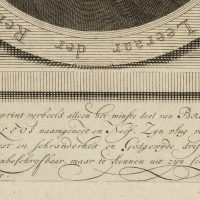 Leeraar der Re
print verbeeld alleen het minste deel van
naamgenoot en Neef. Zyn vlug v
est en schranderheit en Godgewyde drif
nbeschryfbaar, maar te kennen uit zyn